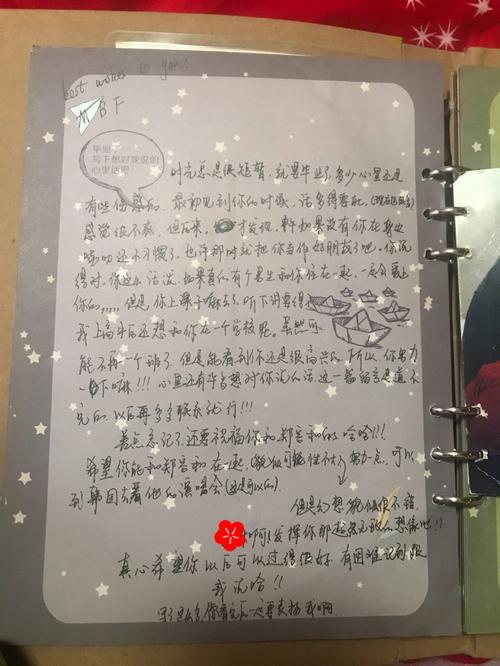 best wishes to you!
M B F
毕业了
写下想对我说的
心里话吧
时光总是很短暂，就要毕业了，多少心里还是
有些伤感的，最初见到你的时候，话多得要死，(现在也一样)
感觉很不熟，但后来，才发现，新如果没有你在身边
唠叨还不习惯了，也许那时就把你当作好朋友了吧，你说
得对，你这么活泼，如果真有个男生和你住在一起，一定会爱上
你的,,,,，但是，你上课干嘛去了，听下讲要得
我上高中后还想和你在一个学校呢。虽然可
能不再一个班了，但是能看到你还是很高兴的，所以，你努力
一下嘛!!!心里还有许多想对你说的话，这一篇留言是道不
完的，以后再多多联系就行!!!
差点忘记了，还要祝福你和郑容和的，哈哈!!!
希望你能和郑容和在一起，(貌似可能性不大)努力一点，可以
到韩国去看他的演唱会(这是可以的)
但是幻想貌似很不错，
发挥你那超强无敌的想象吧!!
真心希望你以后可以过得很好，有困难记得跟
我说哈!!
写了这么多，你看完后一定要表扬我啊